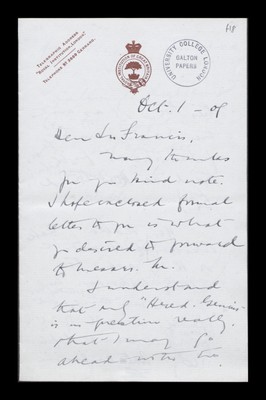 TELEGRAPHIC ADDRESS
TELEPHONE Nº
UNIVERSITY COLLEGE LONDON
GALTON
PAPERS
Oct. 1 - 09
Dear Sir Francis,
Many thanks
for your kind note.
I hope enclosed formal
letter to you is what
you desired to forward
to Messrs. M.
I understand
that only "Hered. Genius"
is in question really,
that I may go
ahead with the